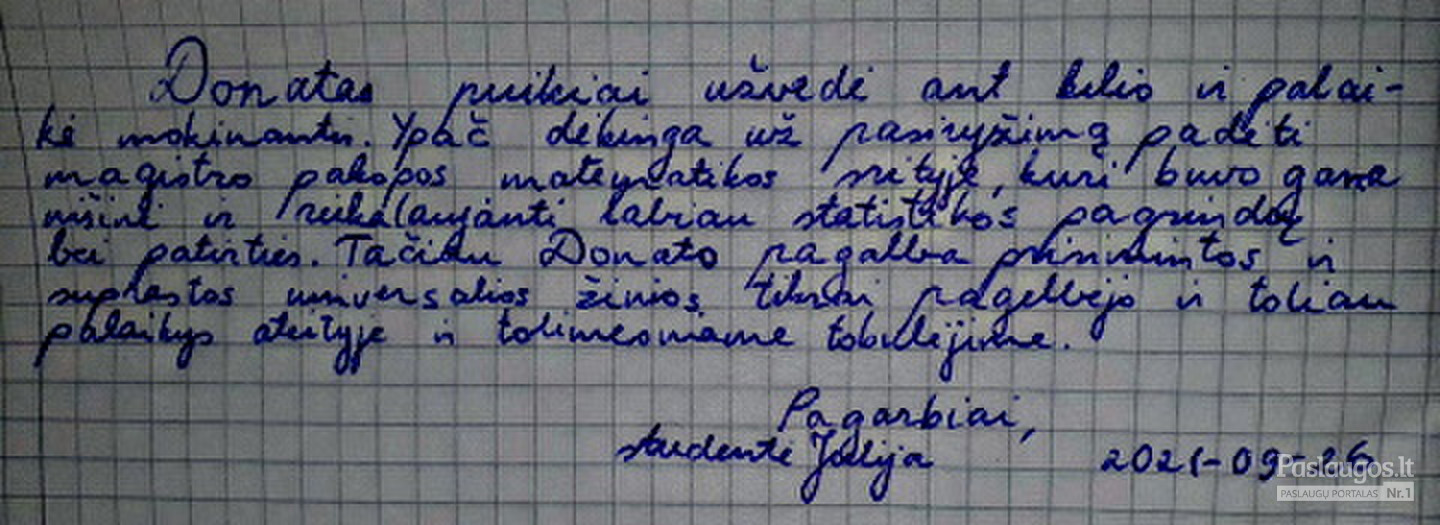 Donatas puikiai užvedė ant kelio ir palai-
kė mokinantis. Ypač dėkinga už pasiryžimą padėti
magistro pakopos matematikos srityje, kuri buvo gana
nišinė ir reikalaujanti labiau statistikos pagrindų
bei patirties. Tačiau Donato pagalba prisimintos ir
suprastos universalios žinios tikrai pagelbėjo ir toliau
palaikys ateityje ir tolimesniame tobulėjime.
Pagarbiai,
studentė Julija 2021-09-26
Paslaugos.lt
PASLAUGŲ PORTALAS Nr.1